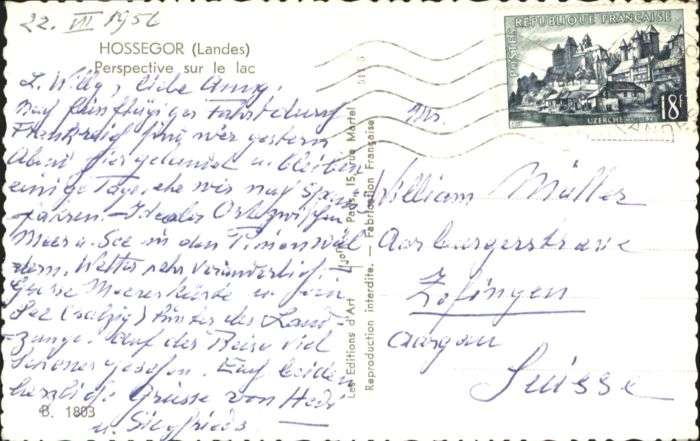 22. VII 1956
HOSSEGOR (Landes)
Perspective sur le lac
L. Willy, liebe Anny.
Nach fünftägiger Fahrt durch
Frankreich sind wir gestern
Abend hier gelandet u. bleiben
einige Tage, ehe wir nach Span.
fahren. Idealer Ort zwischen
Meer u. See in den Pinienwäl
dern. Wetter sehr veränderlich.
Grosse Meeresküste u.
See (salzig) hinter der Land
zunge. Auf der Reise viel
Schönes gesehen. Euch beiden
herzliche Grüsse von Hedi
u. Siegfrieds.
B. 1803
Les Editions d'Art Paris, 15, rue Martel
Reproduction interdite. - Fabrication Française
POSTES REPUBLIQUE FRANÇAISE
UZERCHE
18F
Mr.
William Müller
Aarburgerstrasse
Zofingen
Aargau
Suisse